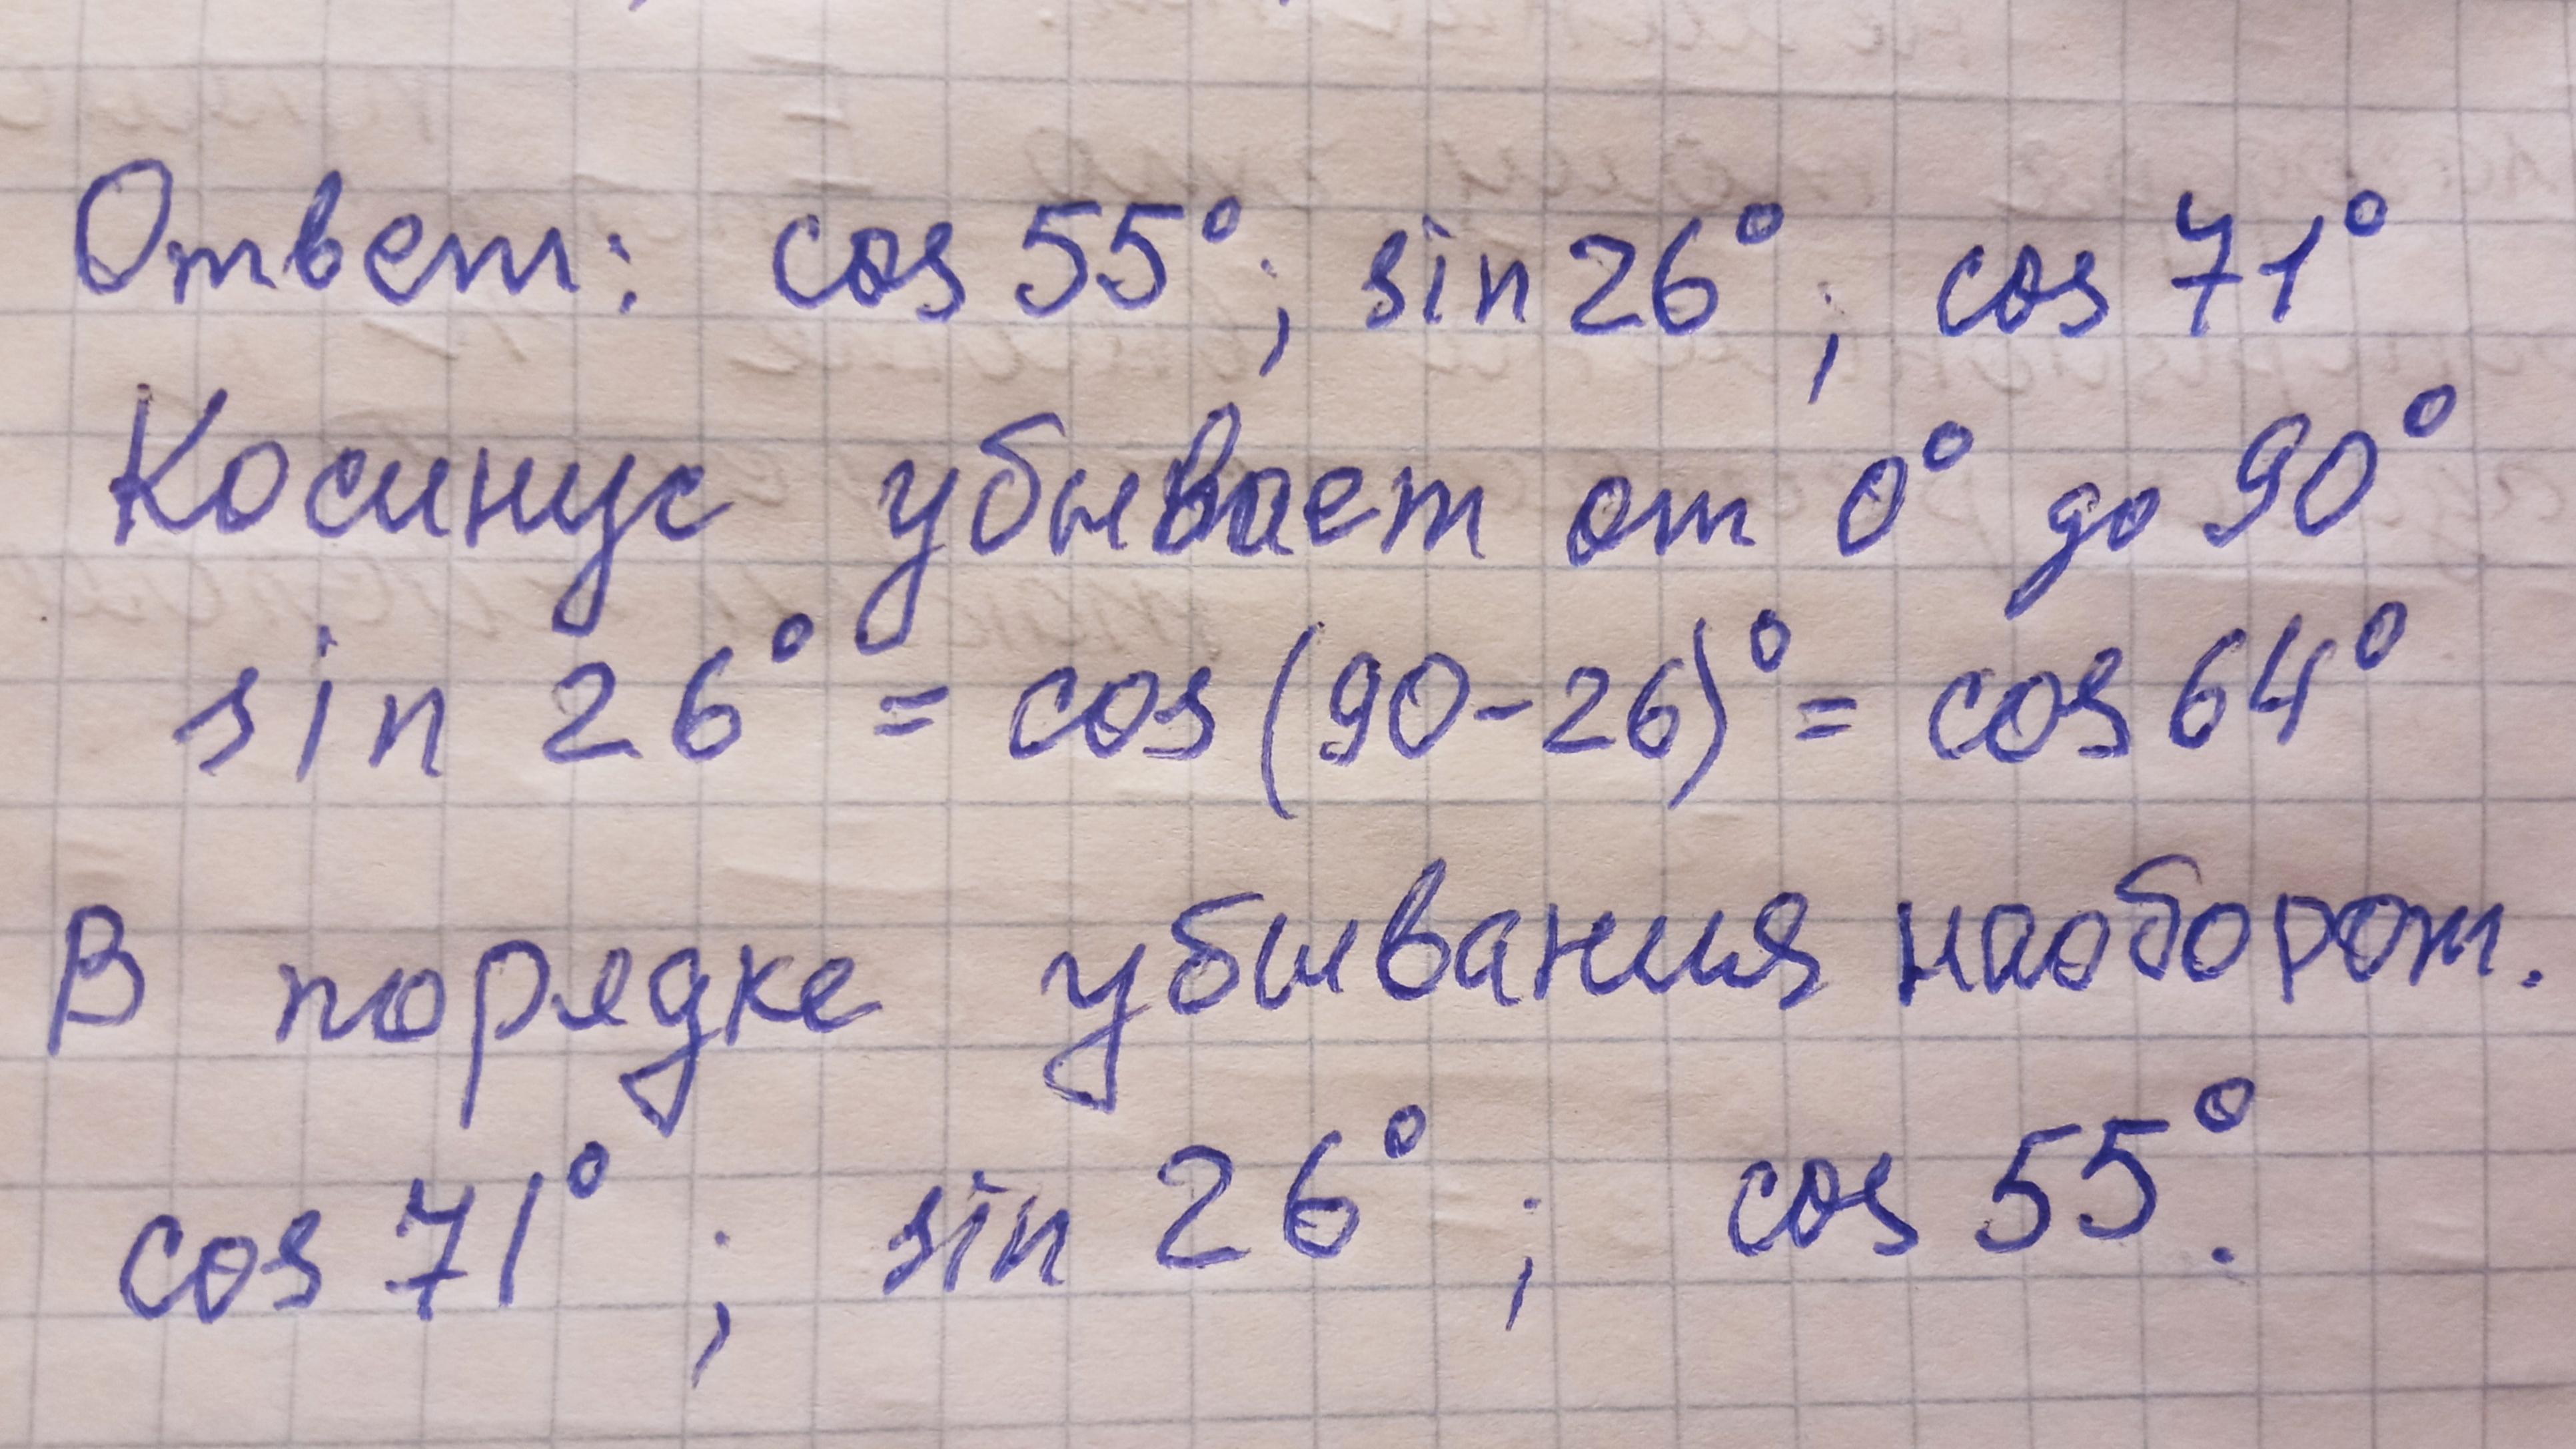 Ответ: cos 55°; sin 26°; cos 71°
Косинус убывает от 0° до 90°
sin 26° = cos (90-26)° = cos 64°
В порядке убывания наоборот.
cos 71°; sin 26°; cos 55°.